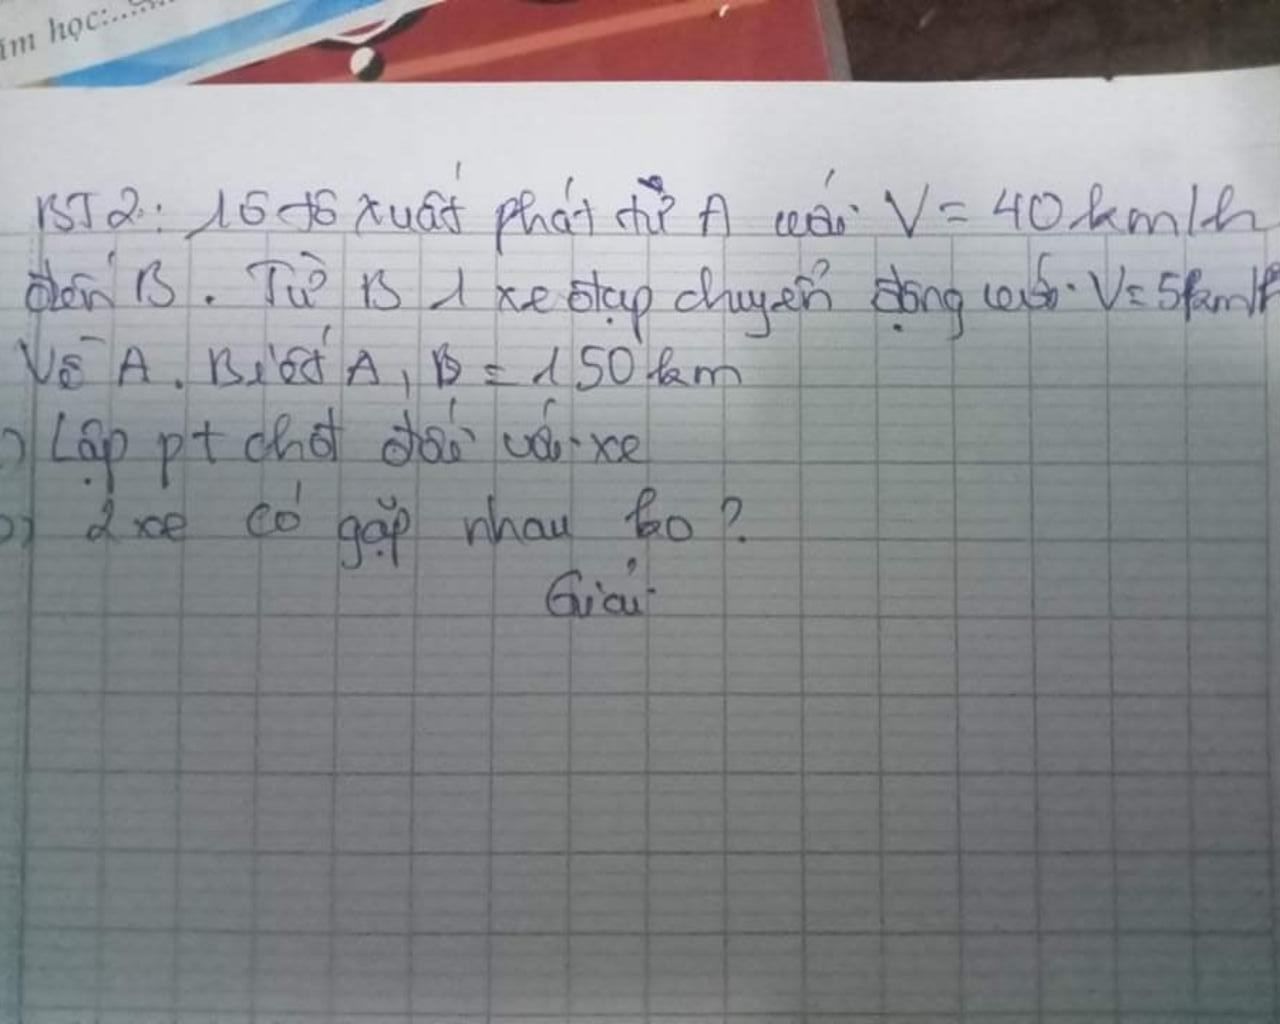 ăm học:.......
BT2: 1 ô tô xuất phát từ A với V = 40 km/h
đến B. Từ B 1 xe đạp chuyển động với V = 5km/h
Về A. Biết A, B = 150 km
) Lập pt chđ đối với xe
) 2 xe có gặp nhau ko?
Giải